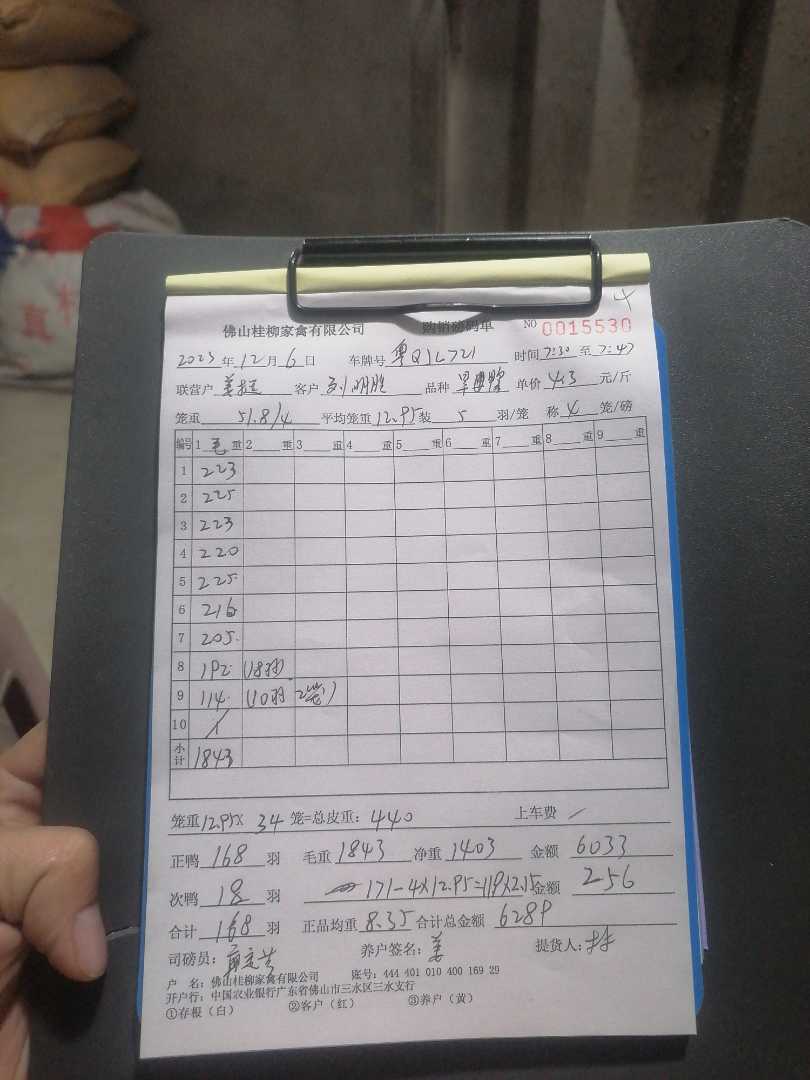 4
佛山桂柳家禽有限公司 购销磅码单 NO 0015530
2023年12月6日 车牌号 粤Q1L721 时间7:30至7:47
联营户 客户 刘明胜 品种 单价 4.3 元/斤
笼重 51.8/4 平均笼重12.95装 5 羽/笼 称 4 笼/磅
编号 1 毛 重 2 重 3 重 4 重 5 重 6 重 7 重 8 重 9 重
1 223
2 225
3 223
4 220
5 225
6 216
7 205
8 192 (18羽)
9 114 (10羽 2笼)
10 /
小计 1843
笼重12.95X 34 笼=总皮重：440 上车费 /
正鸭 168 羽 毛重 1843 净重 1403 金额 6033
次鸭 18 羽 171-4X12.95=119X2.15金额 256
合计 168 羽 正品均重 8.35 合计总金额 6289
司磅员： 养户签名：姜 提货人：
户 名：佛山桂柳家禽有限公司 账号：444 401 010 400 169 29
开户行：中国农业银行广东省佛山市三水区三水支行
①存根（白） ②客户（红） ③养户（黄）